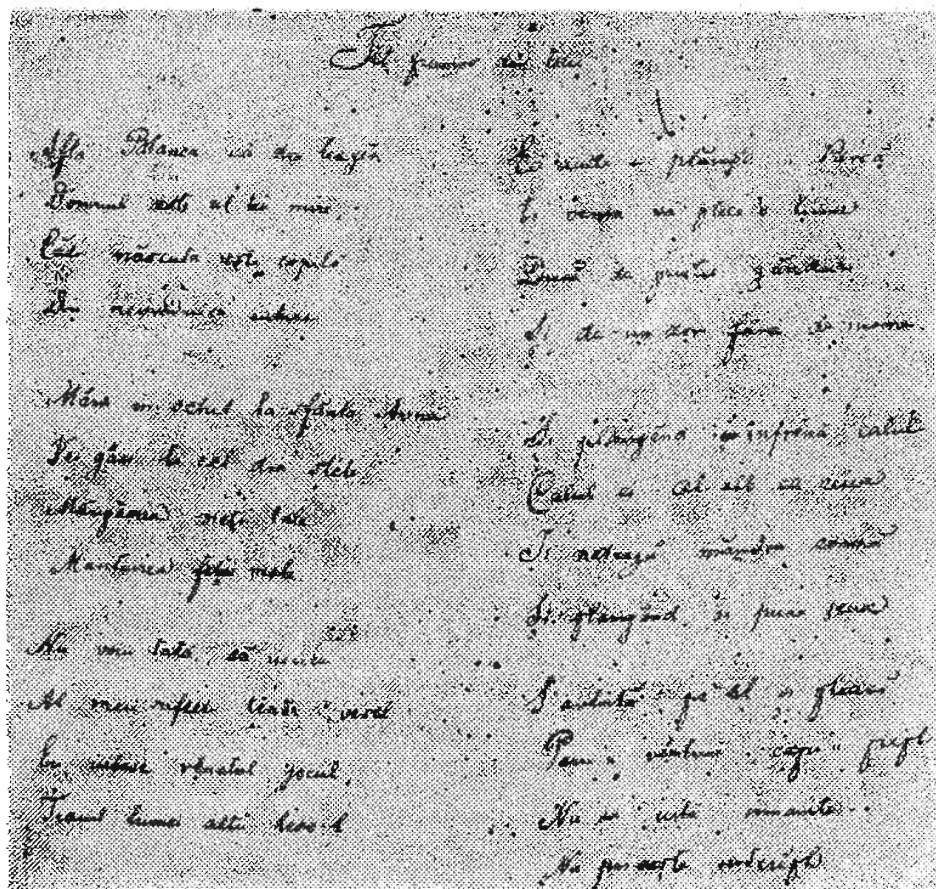 Făt frumos din teiu
Află Blanca că din leagăn
Domnul este al tău mire
Căci născută ești copilo
Din
în ochiul la sfânta Anna
Vei găsi la cel din
Mângăerea vieții tale
Mântuirea feței mele
Nu voiu tată să usuce
Al meu suflet tînăr vesel
Eu iubesc vânatul jocul
Traiul lumei alții
Ei cruntă o plânge Parcă
Îi venea să plece'n lume
Dusă de pustie gânduri
Și de-un dor fără de nume
Și plângând înfrână calul
Calul ei cel alb ca neaua
Îi mândra coamă
Și plângând îi pune șeaua
S'avântă pe el și pleacă
Părul vânturi capu'n piept
Nu se uită înainte
Nu privește îndărăpt